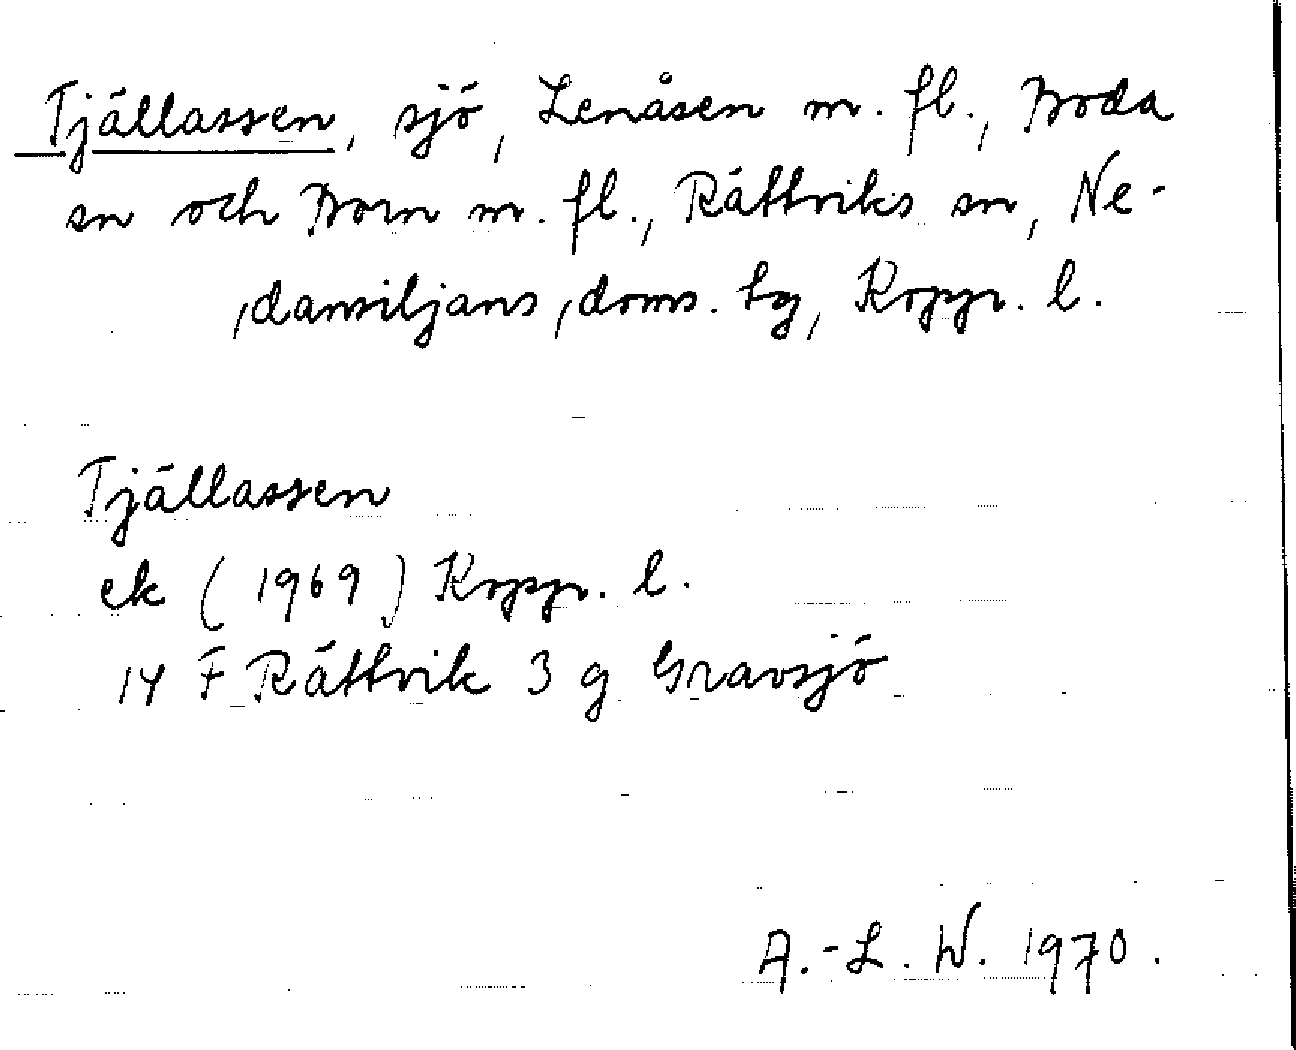 Tjällassen, sjö, Lenåsen m. fl., Boda
sn och Born m. fl., Rättviks sn, Ne-
dansiljans doms. tg, Kopp. l.
Tjällassen
ek (1969) Kopp. l.
14 F Rättvik 3 g Gravsjö
A.-L. W. 1970.